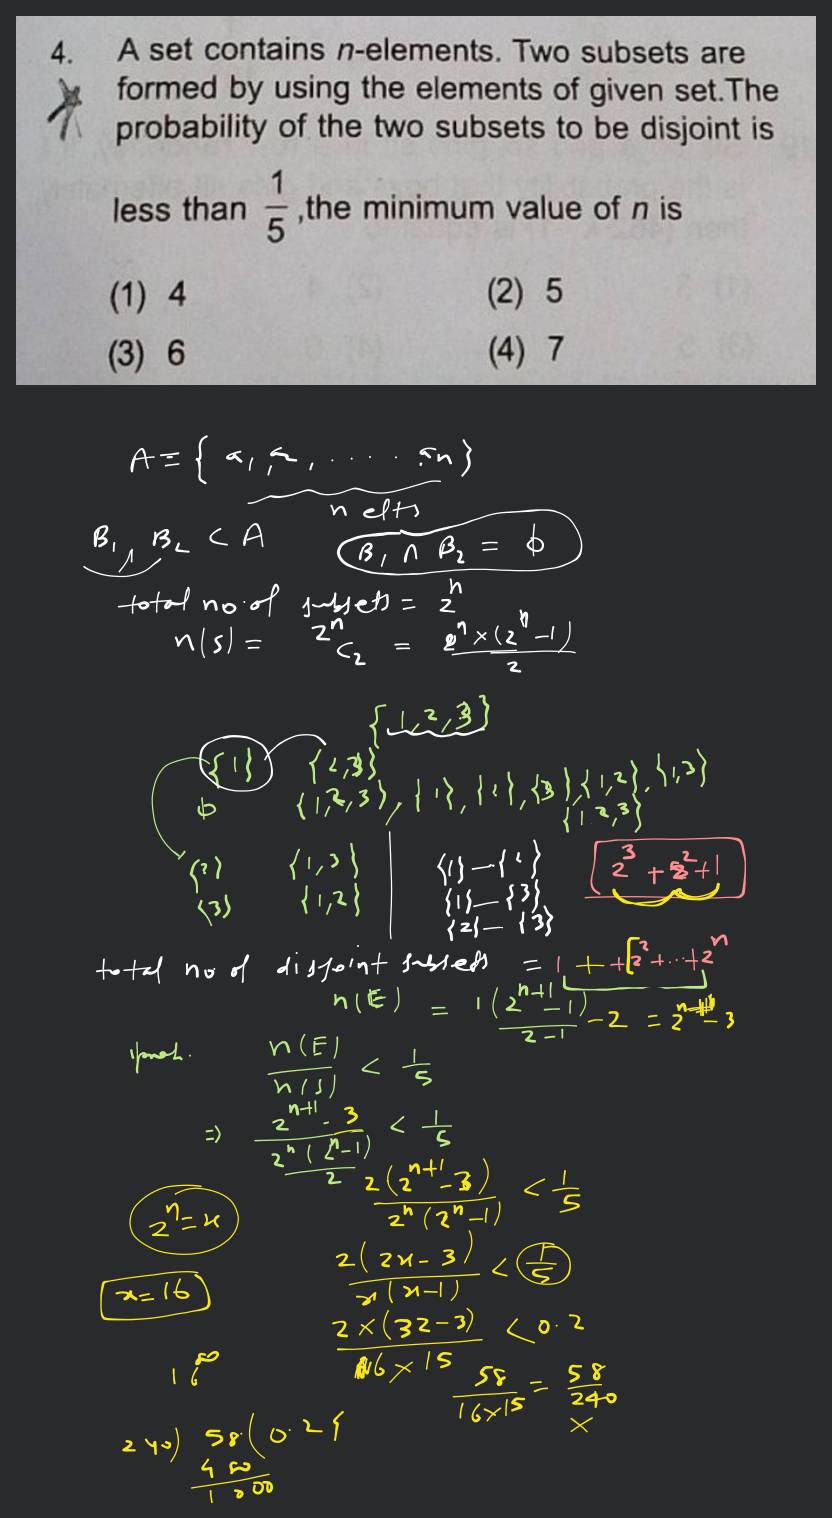 4. A set contains n-elements. Two subsets are
formed by using the elements of given set.The
probability of the two subsets to be disjoint is
less than 1/5 ,the minimum value of n is
(1) 4 (2) 5
(3) 6 (4) 7
A = { a₁, a₂, ..... aₙ}
n elts
B₁, B₂ ⊂ A B₁ ∩ B₂ = ϕ
total no. of subsets = 2ⁿ
n(s) = 2ⁿC₂ = 2ⁿ×(2ⁿ-1)/2
{1,2,3}
{1} {2,3}
ϕ {1,2,3}, {1}, {2}, {3}, {1,2}, {1,3}
{1,2,3}
{2} {1,3} {1}-{2} 2³+2²+1
{3} {1,2} {1}-{3}
{2}-{3}
total no of disjoint subsets = 1 + +[2²+...+2ⁿ
n(E) = 1(2ⁿ⁺¹-1)/2-1 -2 = 2ⁿ⁺¹-3
n(E)/n(s) < 1/5
⇒ 2ⁿ⁺¹-3/2ⁿ(2ⁿ-1)/2 < 1/5
2(2ⁿ⁺¹-3)/2ⁿ(2ⁿ-1) < 1/5
2ⁿ=x
2(2x-3)/x(x-1) < 1/5
x=16
2×(32-3)/16×15 < 0.2
58/16×15 = 58/240
×
240) 58 (0.24
480
1000